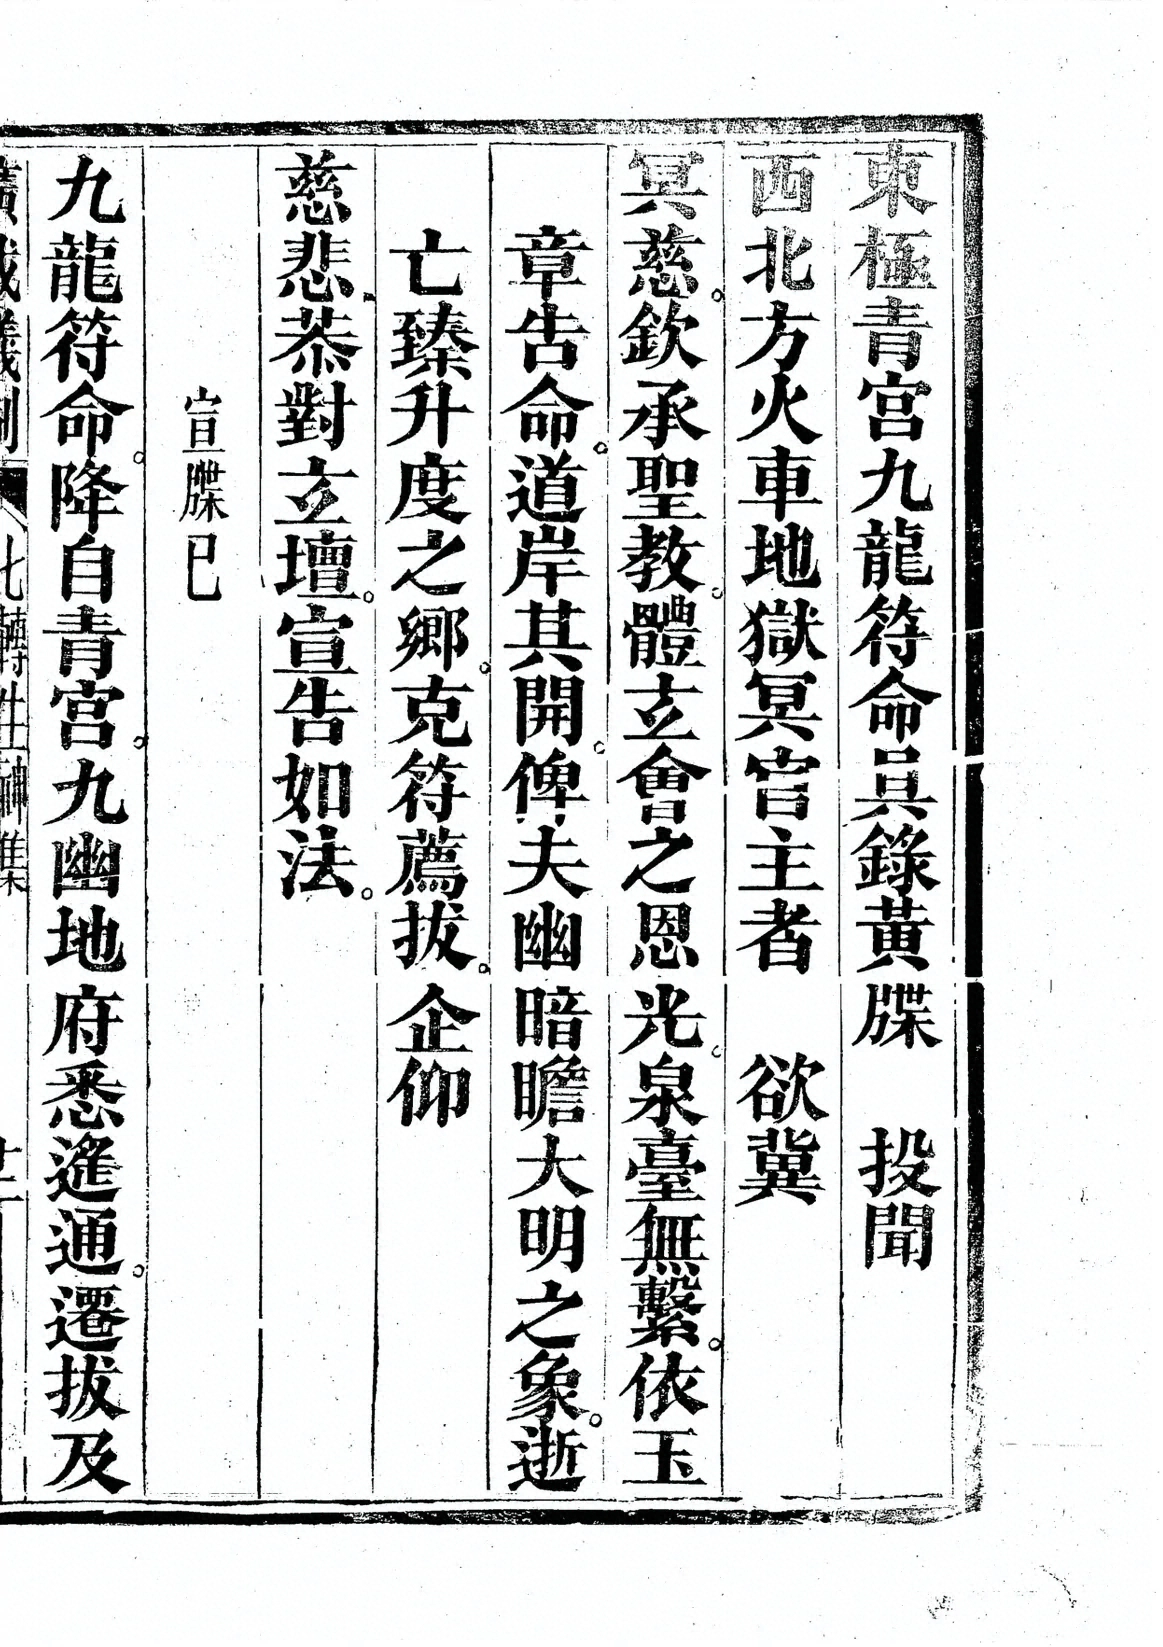 東極青宮九龍符命具錄黃牒　投聞
西北方火車地獄冥官主者　欲冀
冥慈。欽承聖教。體玄會之恩光。泉臺無繫。依玉
章告命。道岸其開。俾夫幽暗瞻大明之象。逝
亡臻升度之鄉。克符薦拔。企仰
慈悲。恭對立壇。宣告如法。
宣牒已
九龍符命。降自青宮。九幽地府悉遙通。遷拔及